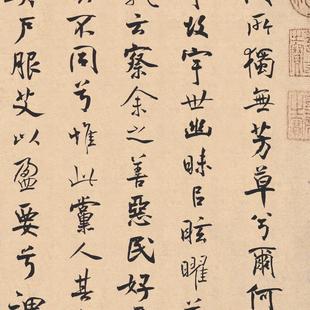 所獨無芳草兮爾何
故宇世幽昧㠯眩曜
云察余之善惡民好
不同兮惟此黨人其
戶服艾以盈要兮謂